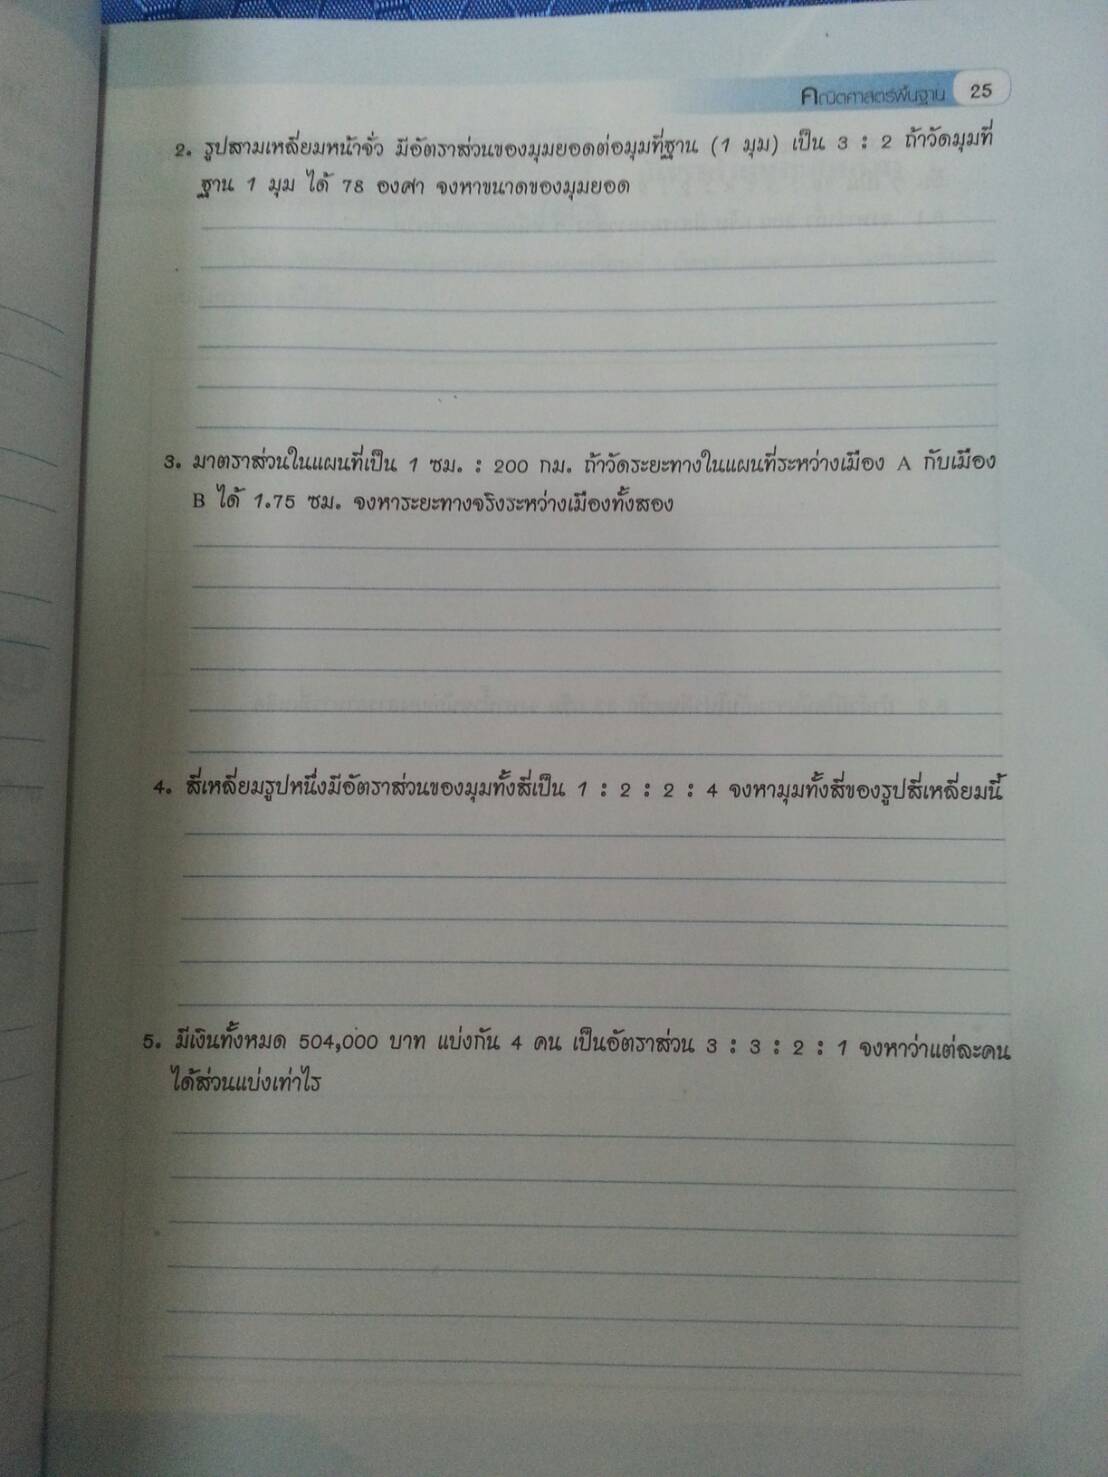 คณิตศาสตร์พื้นฐาน 25
2. รูปสามเหลี่ยมหน้าจั่ว มีอัตราส่วนของมุมยอดต่อมุมที่ฐาน (1 มุม) เป็น 3 : 2 ถ้าวัดมุมที่
ฐาน 1 มุม ได้ 78 องศา จงหาขนาดของมุมยอด
3. มาตราส่วนในแผนที่เป็น 1 ซม. : 200 กม. ถ้าวัดระยะทางในแผนที่ระหว่างเมือง A กับเมือง
B ได้ 1.75 ซม. จงหาระยะทางจริงระหว่างเมืองทั้งสอง
4. สี่เหลี่ยมรูปหนึ่งมีอัตราส่วนของมุมทั้งสี่เป็น 1 : 2 : 2 : 4 จงหามุมทั้งสี่ของรูปสี่เหลี่ยมนี้
5. มีเงินทั้งหมด 504,000 บาท แบ่งกัน 4 คน เป็นอัตราส่วน 3 : 3 : 2 : 1 จงหาว่าแต่ละคน
ได้ส่วนแบ่งเท่าไร